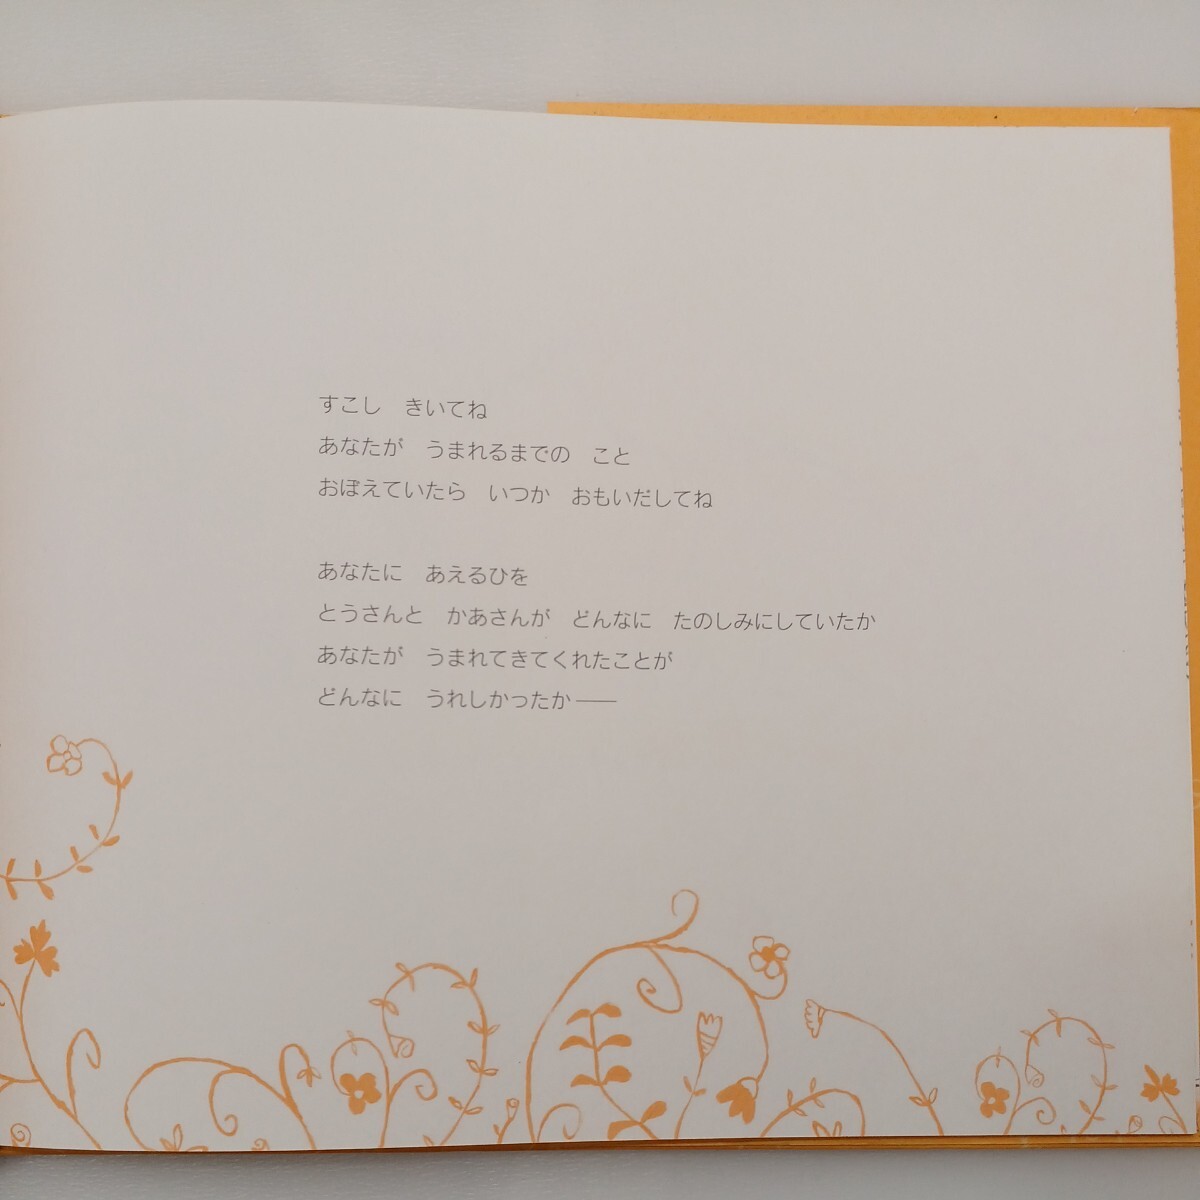 すこし　きいてね
あなたが　うまれるまでの　こと
おぼえていたら　いつか　おもいだしてね
あなたに　あえるひを
とうさんと　かあさんが　どんなに　たのしみにしていたか
あなたが　うまれてきてくれたことが
どんなに　うれしかったか――